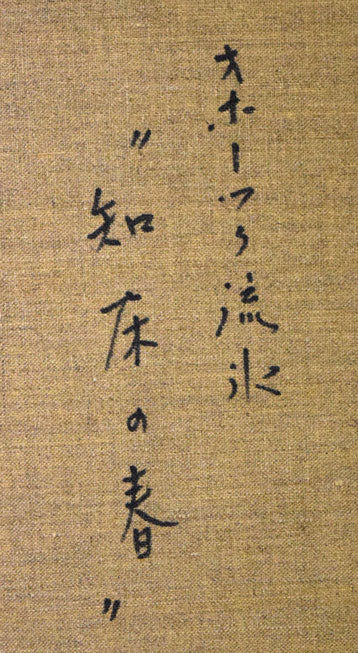 オホーツク流氷
"知床の春"